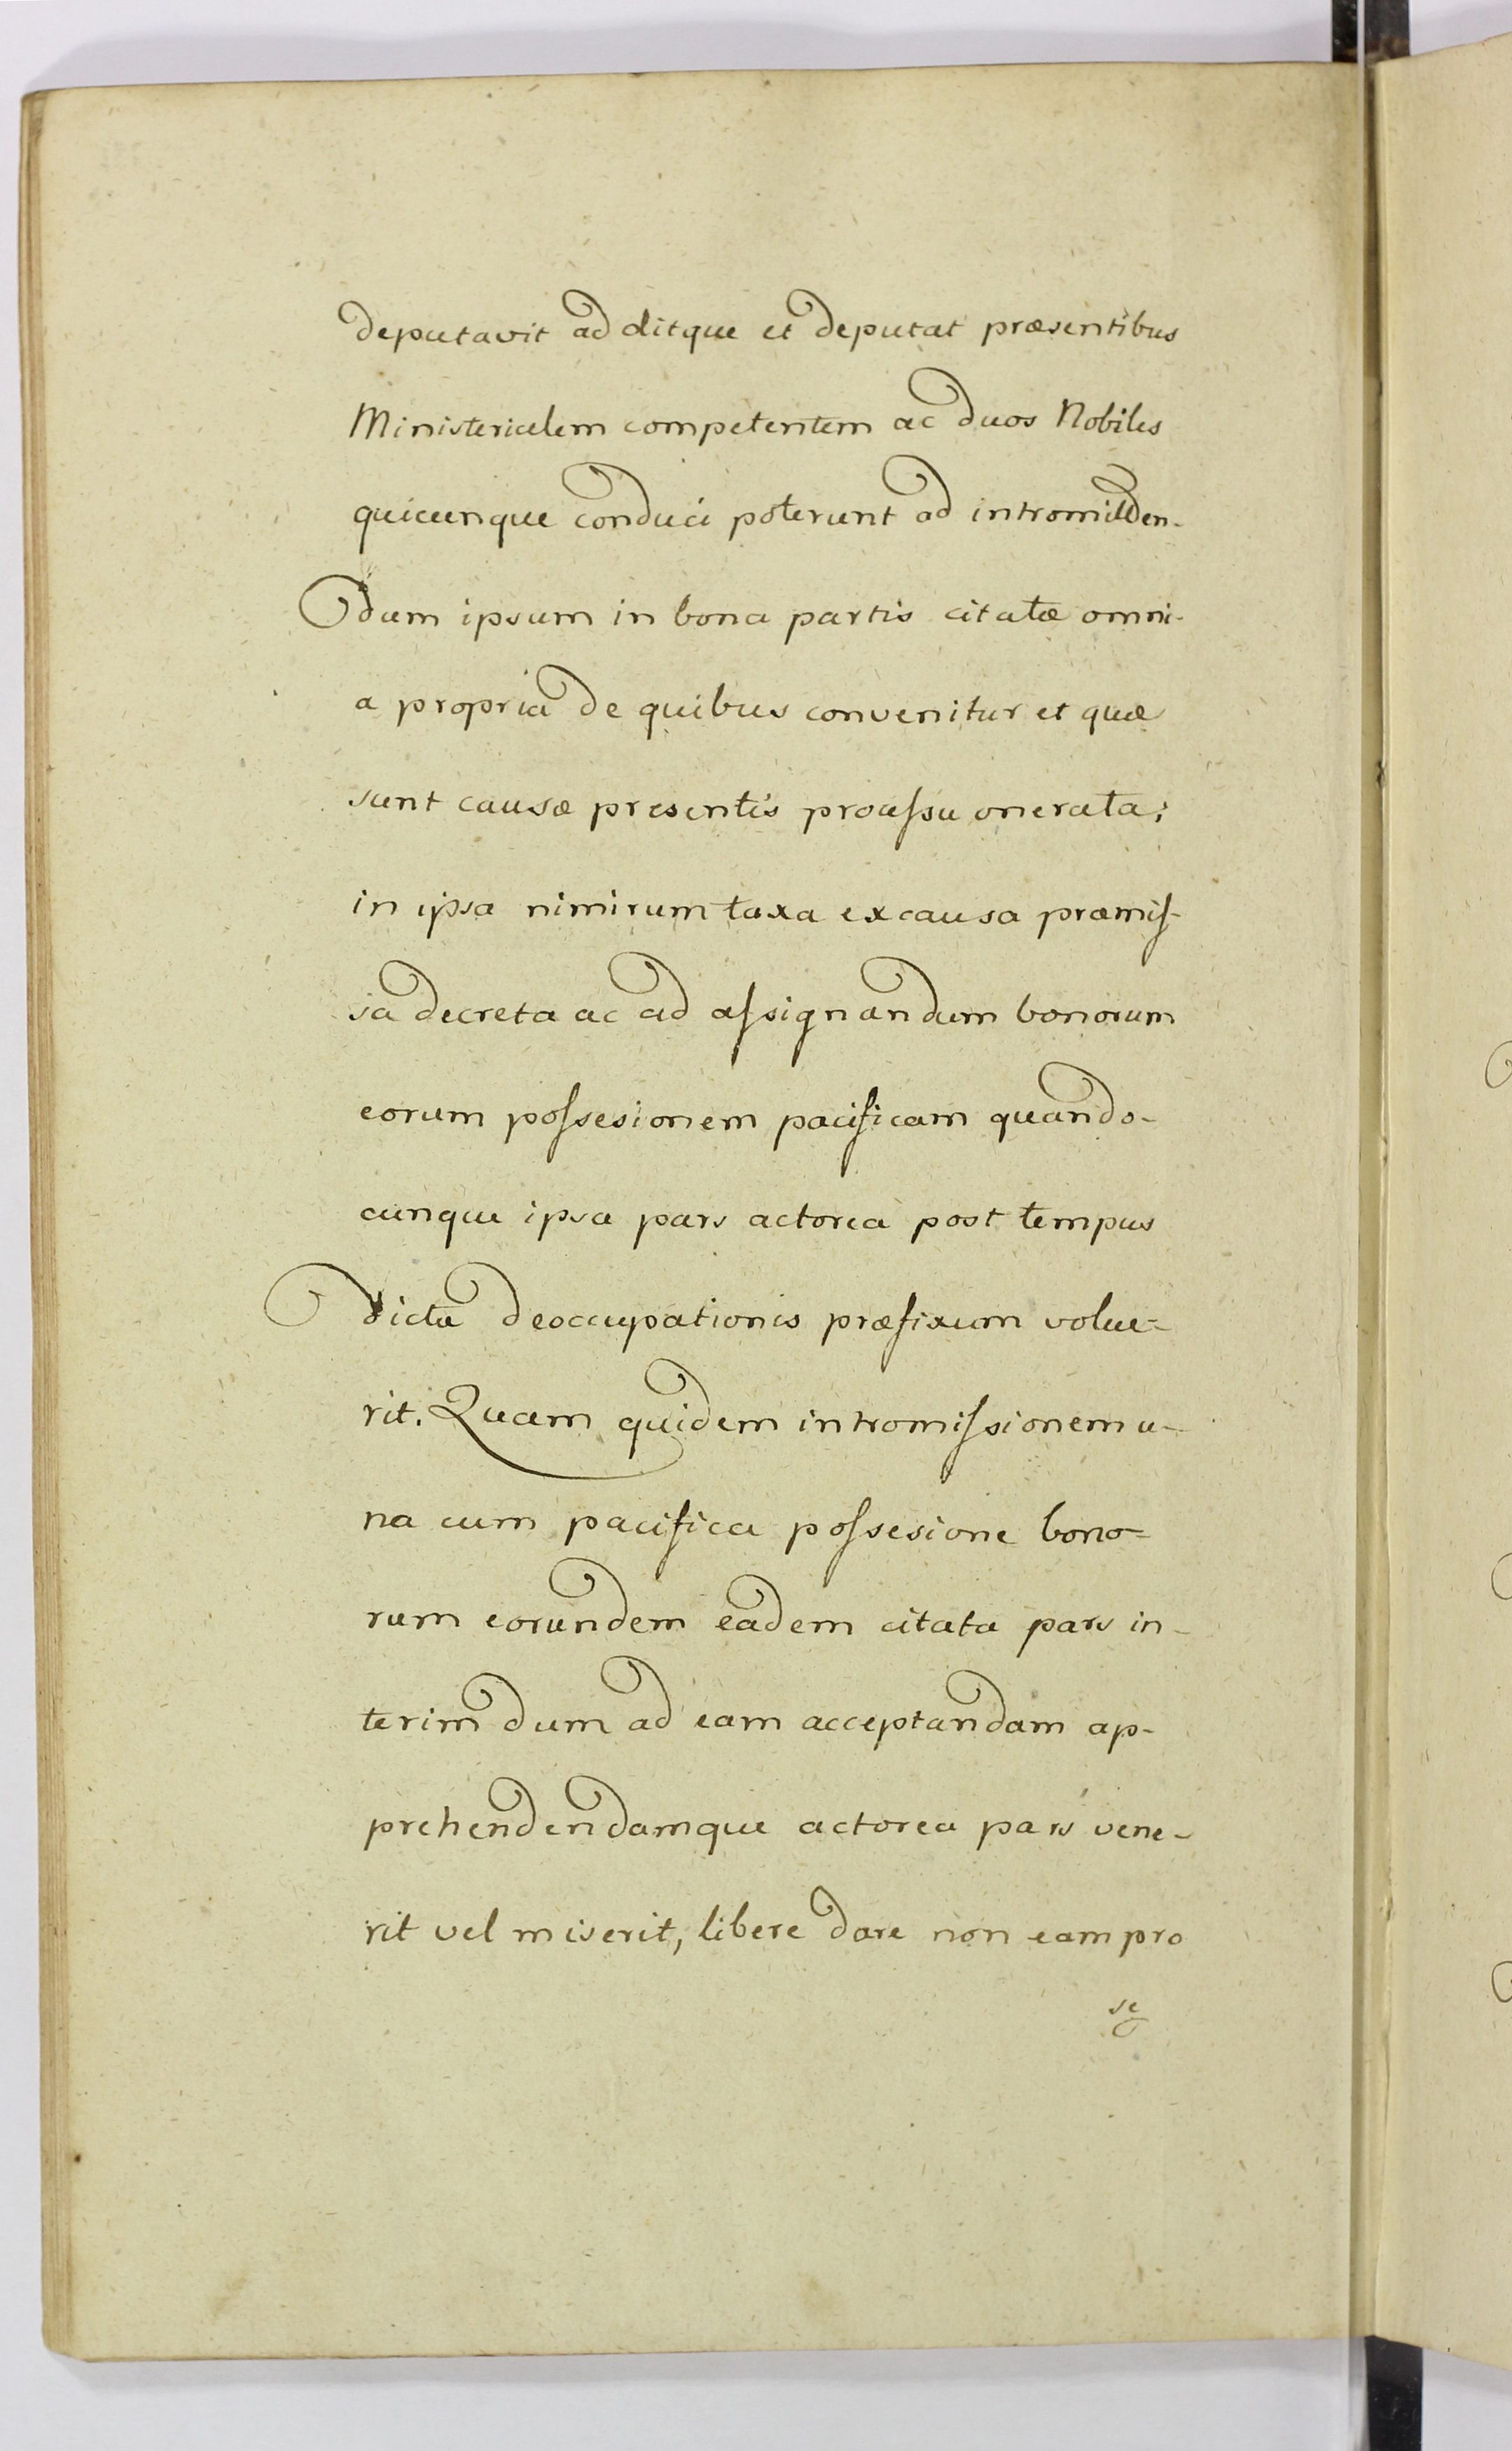 deputavit ad ditque et deputat præsentibus
Ministerialem competentem ac duos Nobiles
quicunque conduci poterunt ad intromitten-
dum ipsum in bona partis citatæ omni-
a propria de quibus convenitur et quæ
sunt causæ presentis proceſsu onerata;
in ipsa nimirum taxa ex causa præmiſ-
sa decreta ac ad aſsignandum bonorum
eorum poſsesionem pacificam quando-
cunque ipsa pars actorea post tempus
dictæ deoccupationis præfixum volue-
rit. Quam quidem intromiſsionem u-
na cum pacifica poſsesione bono-
rum eorundem eadem citata pars in-
terim dum ad eam acceptandam ap-
prehendendamque actorea pars vene-
rit vel miserit, libere dare non eam pro
se